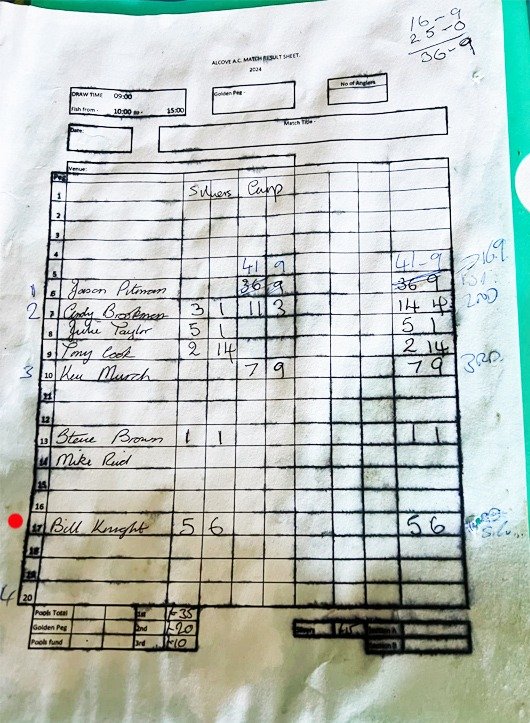 16-9
25-0
36-9
ALCOVE A.C. MATCH RESULT SHEET.
2024
DRAW TIME 09:00
Fish from - 10:00 15:00
Golden Peg
No of Anglers
Date:
Match Title -
Venue:
Peg
1 Silvers Carp
2
3
4
5 41 9 41-9
1 6 Jason Pitman 36-9 36 9 1ST
2 7 Andy Brookman 3 1 11 3 14 4 2ND
8 Julie Taylor 5 1 5 1
9 Tony Cook 2 14 2 14
3 10 Ken Murch 7 9 7 9 3RD
11
12
13 Steve Brown 1 1 1 1
14 Mike Reid
15
16
17 Bill Knight 5 6 5 6
18
19
4 20
Pools Total 1st £35
Golden Peg 2nd £20
Pools fund 3rd £10